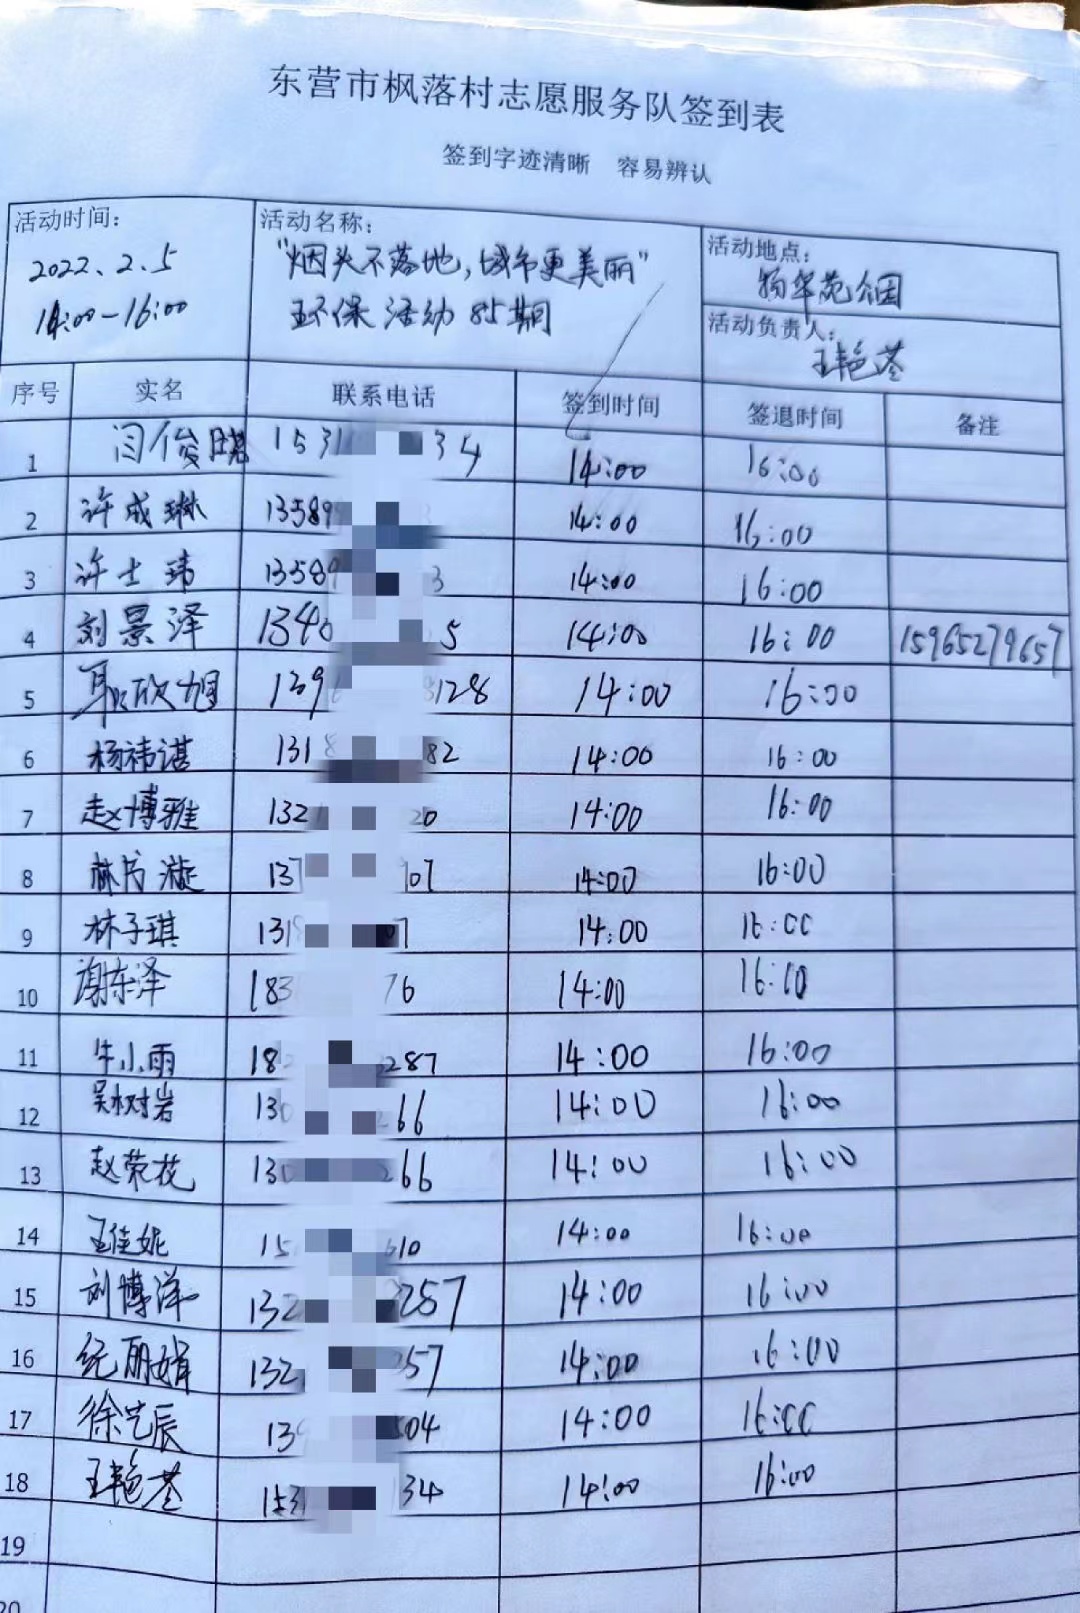 东营市枫落村志愿服务队签到表
签到字迹清晰 容易辨认
活动时间：
2022、2.5
14:00-16:00
活动名称：
"烟头不落地,城市更美丽"
环保活动85期
活动地点：
杨华苑公园
活动负责人：
王艳苓
序号 实名 联系电话 签到时间 签退时间 备注
1 闫俊晓 1531 34 14:00 16:00
2 许成琳 13589 14:00 16:00
3 许士玮 13589 3 14:00 16:00
4 刘景泽 1340 5 14:00 16:00 15965279657
5 耿欣旭 139 8128 14:00 16:00
6 杨祎谌 1318 82 14:00 16:00
7 赵博雅 132 20 14:00 16:00
8 林书漩 137 907 14:00 16:00
9 林子琪 131 07 14:00 16:00
10 谢东泽 183 76 14:00 16:10
11 牛小雨 18 287 14:00 16:00
12 吴树岩 130 266 14:00 16:00
13 赵荣花 130 266 14:00 16:00
14 王佳妮 15 610 14:00 16:00
15 刘博洋 132 257 14:00 16:00
16 纪丽娟 132 257 14:00 16:00
17 徐艺辰 139 504 14:00 16:00
18 王艳苓 1531 34 14:00 16:00
19
20